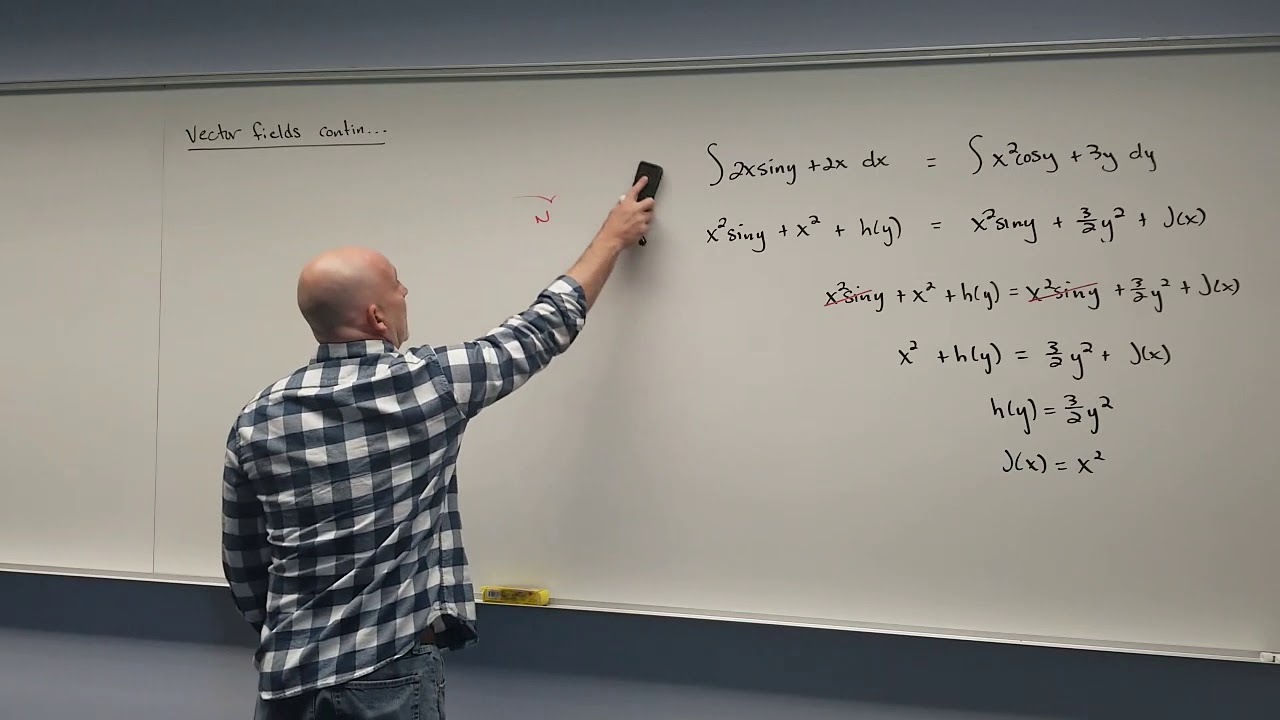 Vector fields contin...
N
∫2xsiny + 2x dx = ∫x²cosy + 3y dy
x²siny + x² + h(y) = x²siny + 3/2y² + J(x)
x²siny + x² + h(y) = x²siny + 3/2y² + J(x)
x² + h(y) = 3/2y² + J(x)
h(y) = 3/2y²
J(x) = x²